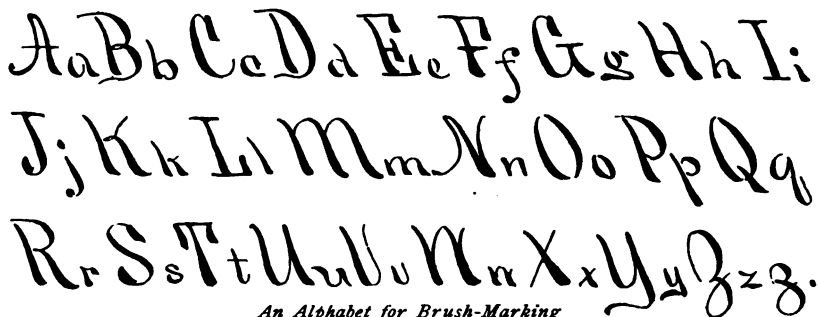 Aa Bb Cc Dd Ee Ff Gg Hh Ii
Jj Kk Ll Mm Nn Oo Pp Qq
Rr Ss Tt Uu Vv Ww Xx Yy Zz z.
An Alphabet for Brush-Marking